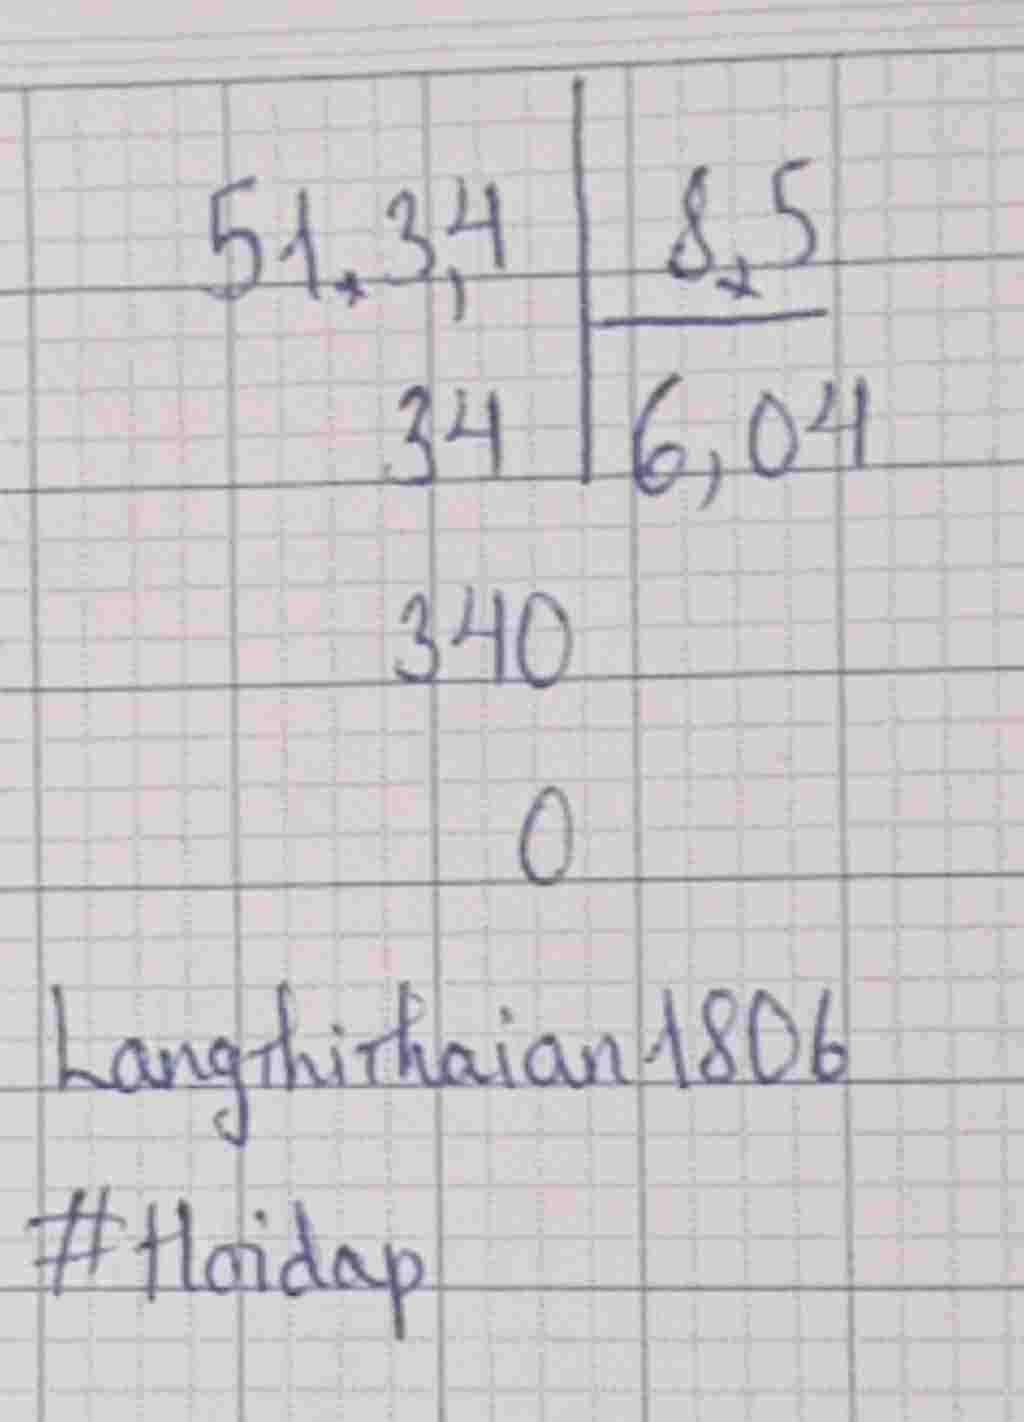 51,3,4 | 8,5
34 | 6,04
340
0
Langthithaian1806
#Hoidap